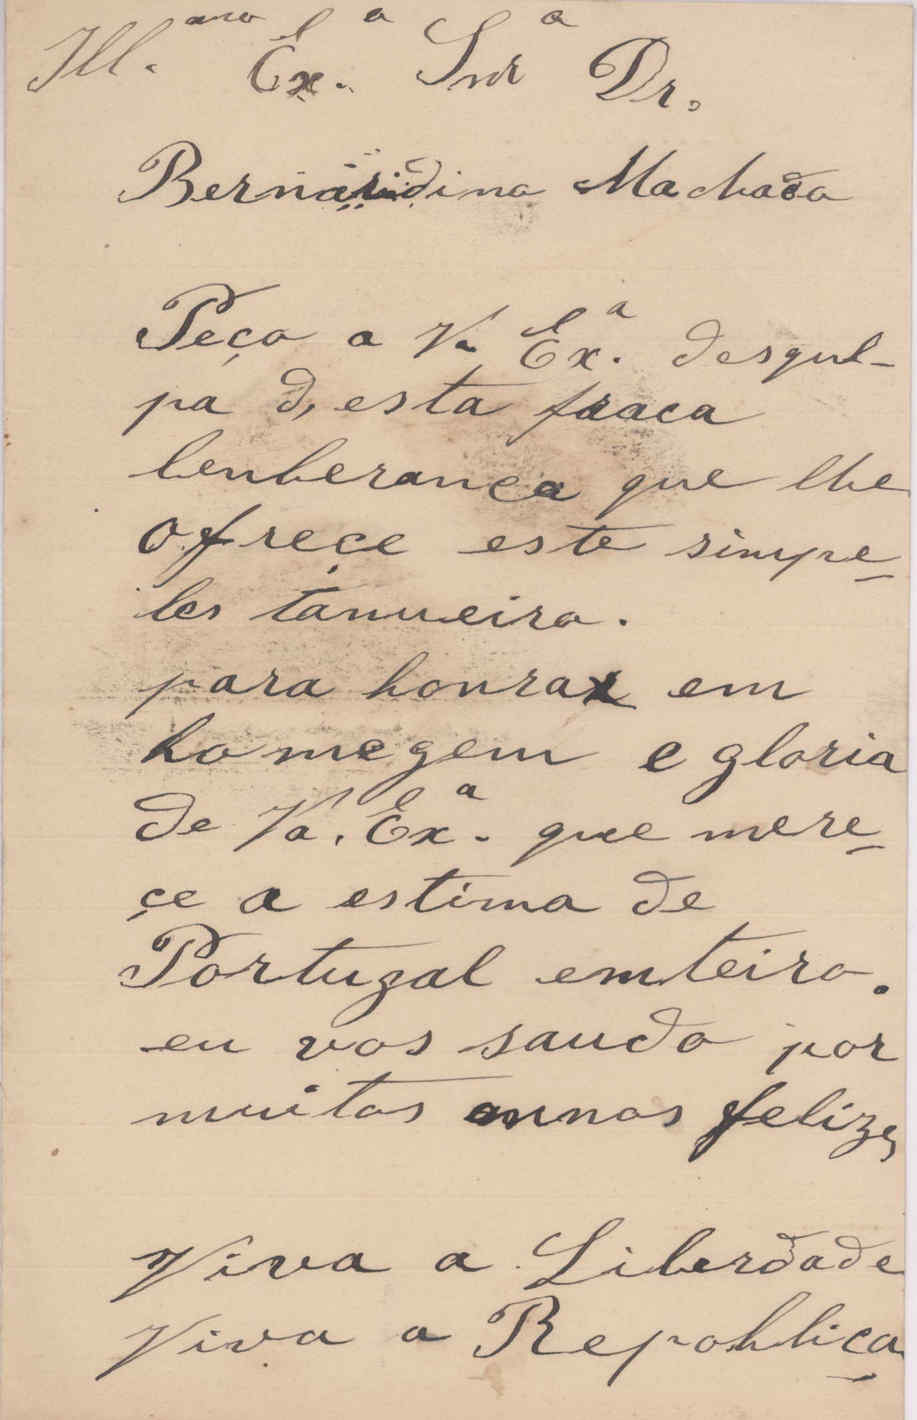 Ill.mo Ex.a Snr.a Dr.
Bernardino Machado
Peço a V. Ex.a desqul-
pa d, esta fraca
lenberança que lhe
ofreçe este simpe-
les tanueiro.
para honrar em
homegem e gloria
de Va. Ex.a que mere-
çe a estima de
Portugal emteiro.
eu vos saudo por
muitos annos felizes
Viva a Liberdade
Viva a Repobliça